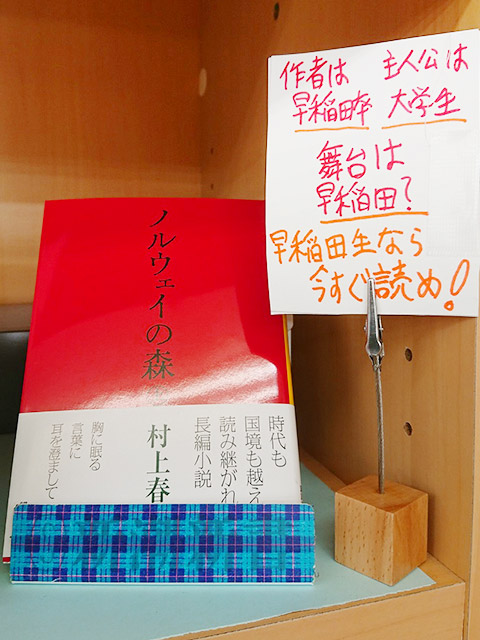 作者は 主人公は
早稲田卒 大学生
舞台は
早稲田?
早稲田生なら
今すぐ読め!
ノルウェイの森
村上春
時代も
国境も越え
読み継がれ
長編小説
胸に眠る
言葉に
耳を澄まして